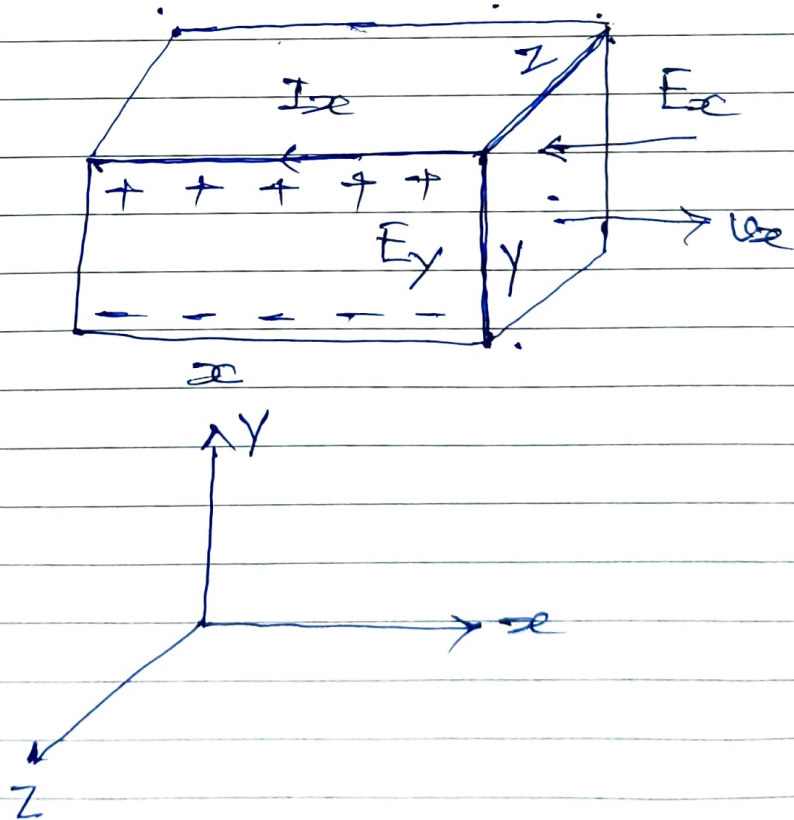 z
Ix
Ex
+ + + + +
Ey
y
vx
- - - - -
x
y
x
z